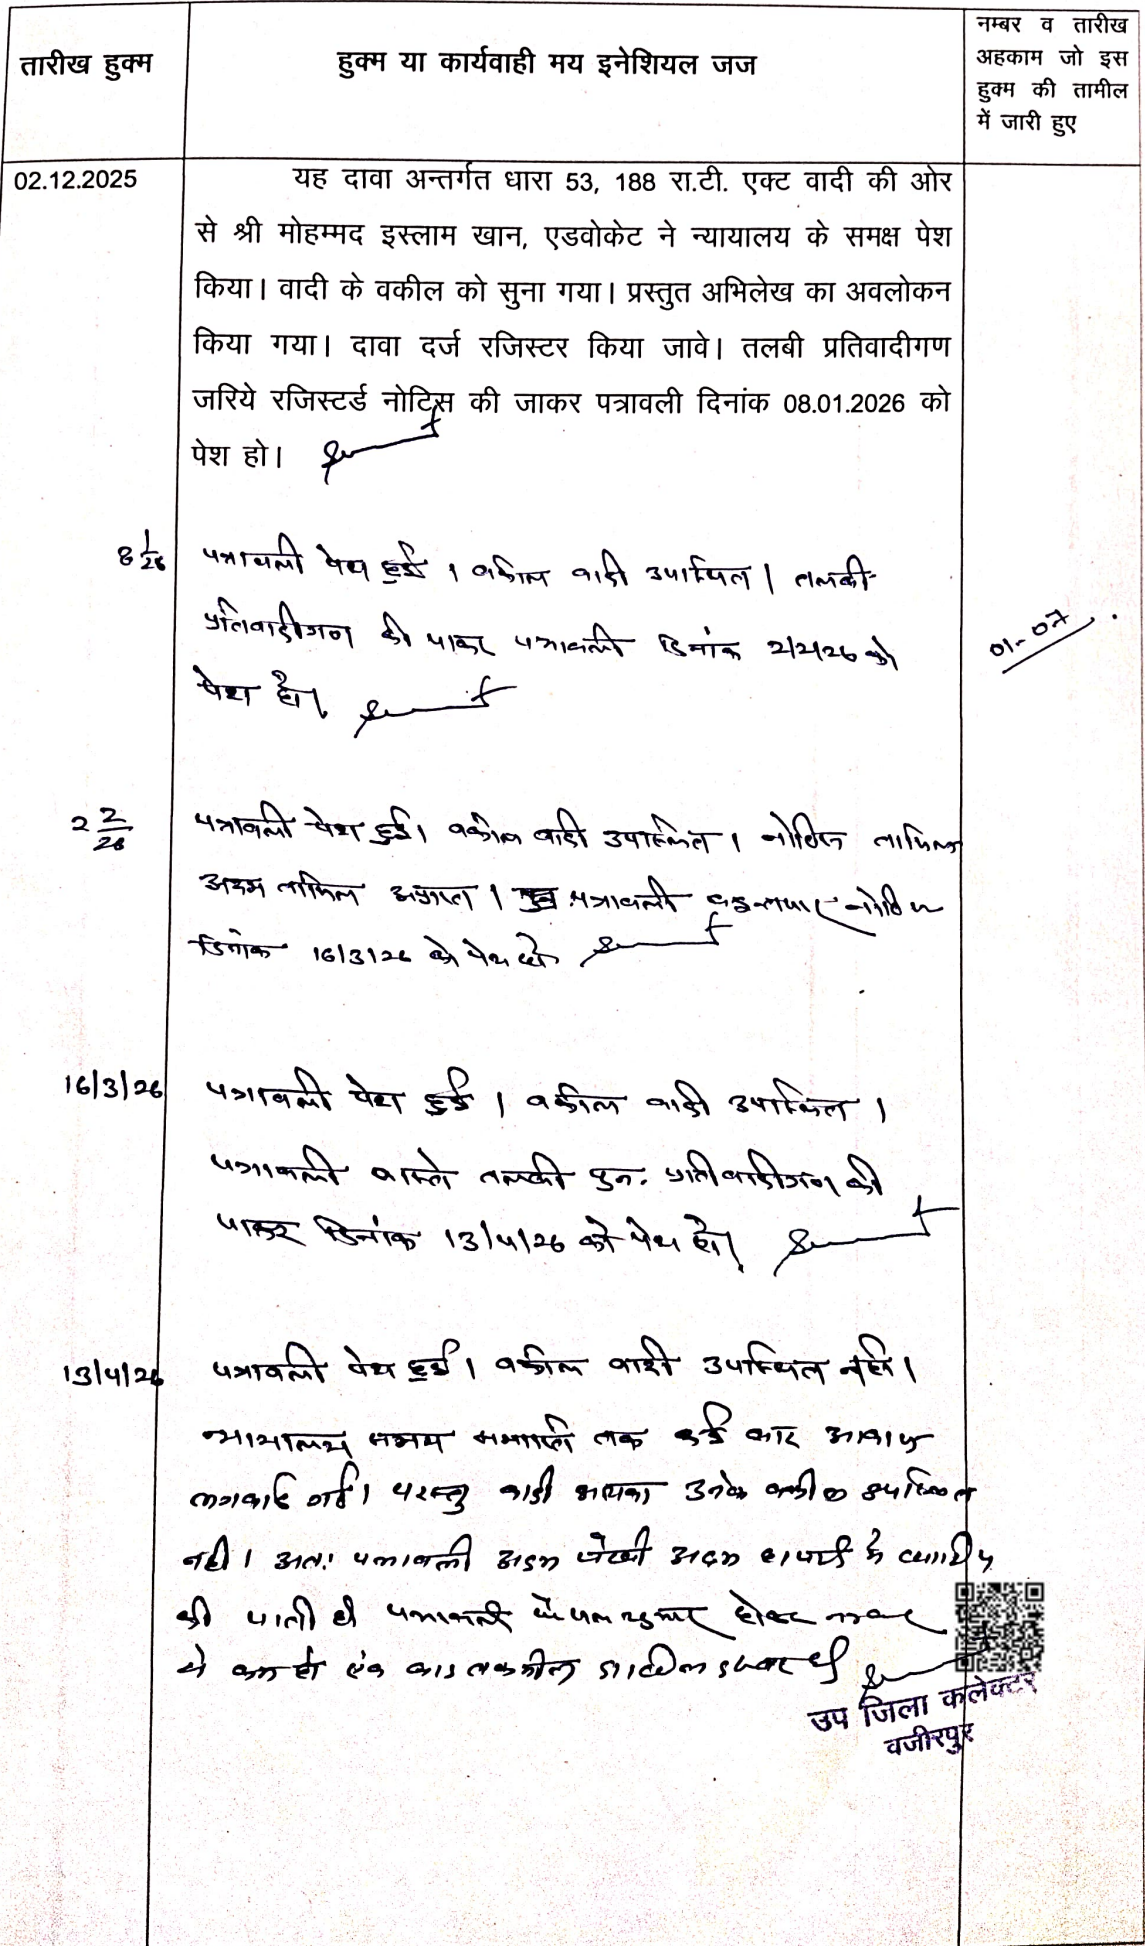 तारीख हुक्म
हुक्म या कार्यवाही मय इनेशियल जज
नम्बर व तारीख
अहकाम जो इस
हुक्म की तामील
में जारी हुए
02.12.2025
यह दावा अन्तर्गत धारा 53, 188 रा.टी. एक्ट वादी की ओर
से श्री मोहम्मद इस्लाम खान, एडवोकेट ने न्यायालय के समक्ष पेश
किया। वादी के वकील को सुना गया। प्रस्तुत अभिलेख का अवलोकन
किया गया। दावा दर्ज रजिस्टर किया जावे। तलबी प्रतिवादीगण
जरिये रजिस्टर्ड नोटिस की जाकर पत्रावली दिनांक 08.01.2026 को
पेश हो।
8 1/26
पत्रावली पेश हुई। वकील वादी उपस्थित। तलबी
प्रतिवादीगण की जाकर पत्रावली दिनांक 2/2/26 को
पेश हो।
01-07
2 2/26
पत्रावली पेश हुई। वकील वादी उपस्थित। नोटिस तामिल
अदम तामिल अप्राप्त। पत्रावली इन्तजार नोटिस
दिनांक 16/3/26 को पेश हो
16/3/26
पत्रावली पेश हुई। वकील वादी उपस्थित।
पत्रावली वास्ते तलबी पुनः प्रतिवादीगण की
जाकर दिनांक 13/4/26 को पेश हो।
13/4/26
पत्रावली पेश हुई। वकील वादी उपस्थित नहीं।
न्यायालय समय समाप्ति तक कई बार आवाज
लगवाई गई। परन्तु वादी अथवा उनके वकील उपस्थित
नहीं। अतः पत्रावली अदम पैरवी अदम हाजरी में खारीज
की जाती है पत्रावली फैसल शुमार होकर नम्बर
से कम हो एवं बाद तकमील दाखिल दफ्तर हो
उप जिला कलेक्टर
वजीरपुर